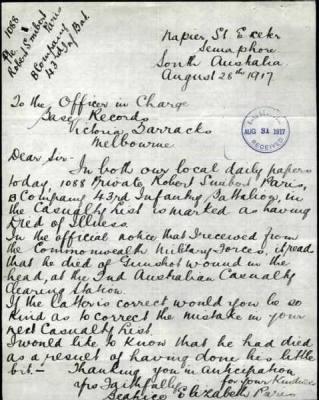 1088
Pte Robert Smibert Paris
B Company
43rd In/ Bat.
Napier St Exeter
Semaphore
South Australia
August 28th 1917
To the Officer in Charge
Base Records
Victoria Barracks
Melbourne
AUG 31 1917
RECEIVED
Dear Sir-
In both our local daily papers
today, 1088 Private Robert Smibert Paris,
B Company 43rd Infantry Battalion, in
the Casualty List is marked as having
Died of Illness
In the official notice that I received from
the Commonwealth Military Forces, it read
that he died of Gunshot wound in the
head, at the 2nd Australian Casualty
Clearing Station.
If the latter is correct would you be so
kind as to correct the mistake in your
next Casualty List.
I would like to know that he had died
as a result of having done his little
bit.- Thanking you in anticipation
for your Kindness
yrs Faithfully
Elizabeth Paris